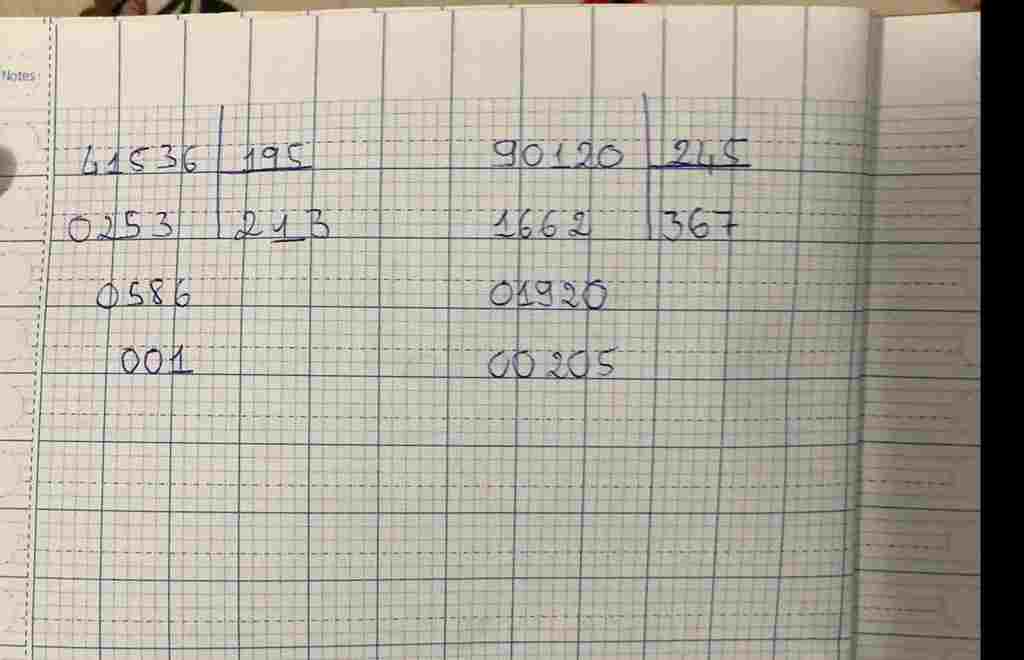 Notes:
41536 195
0253 213
0586
001
90120 245
1662 367
01920
00205